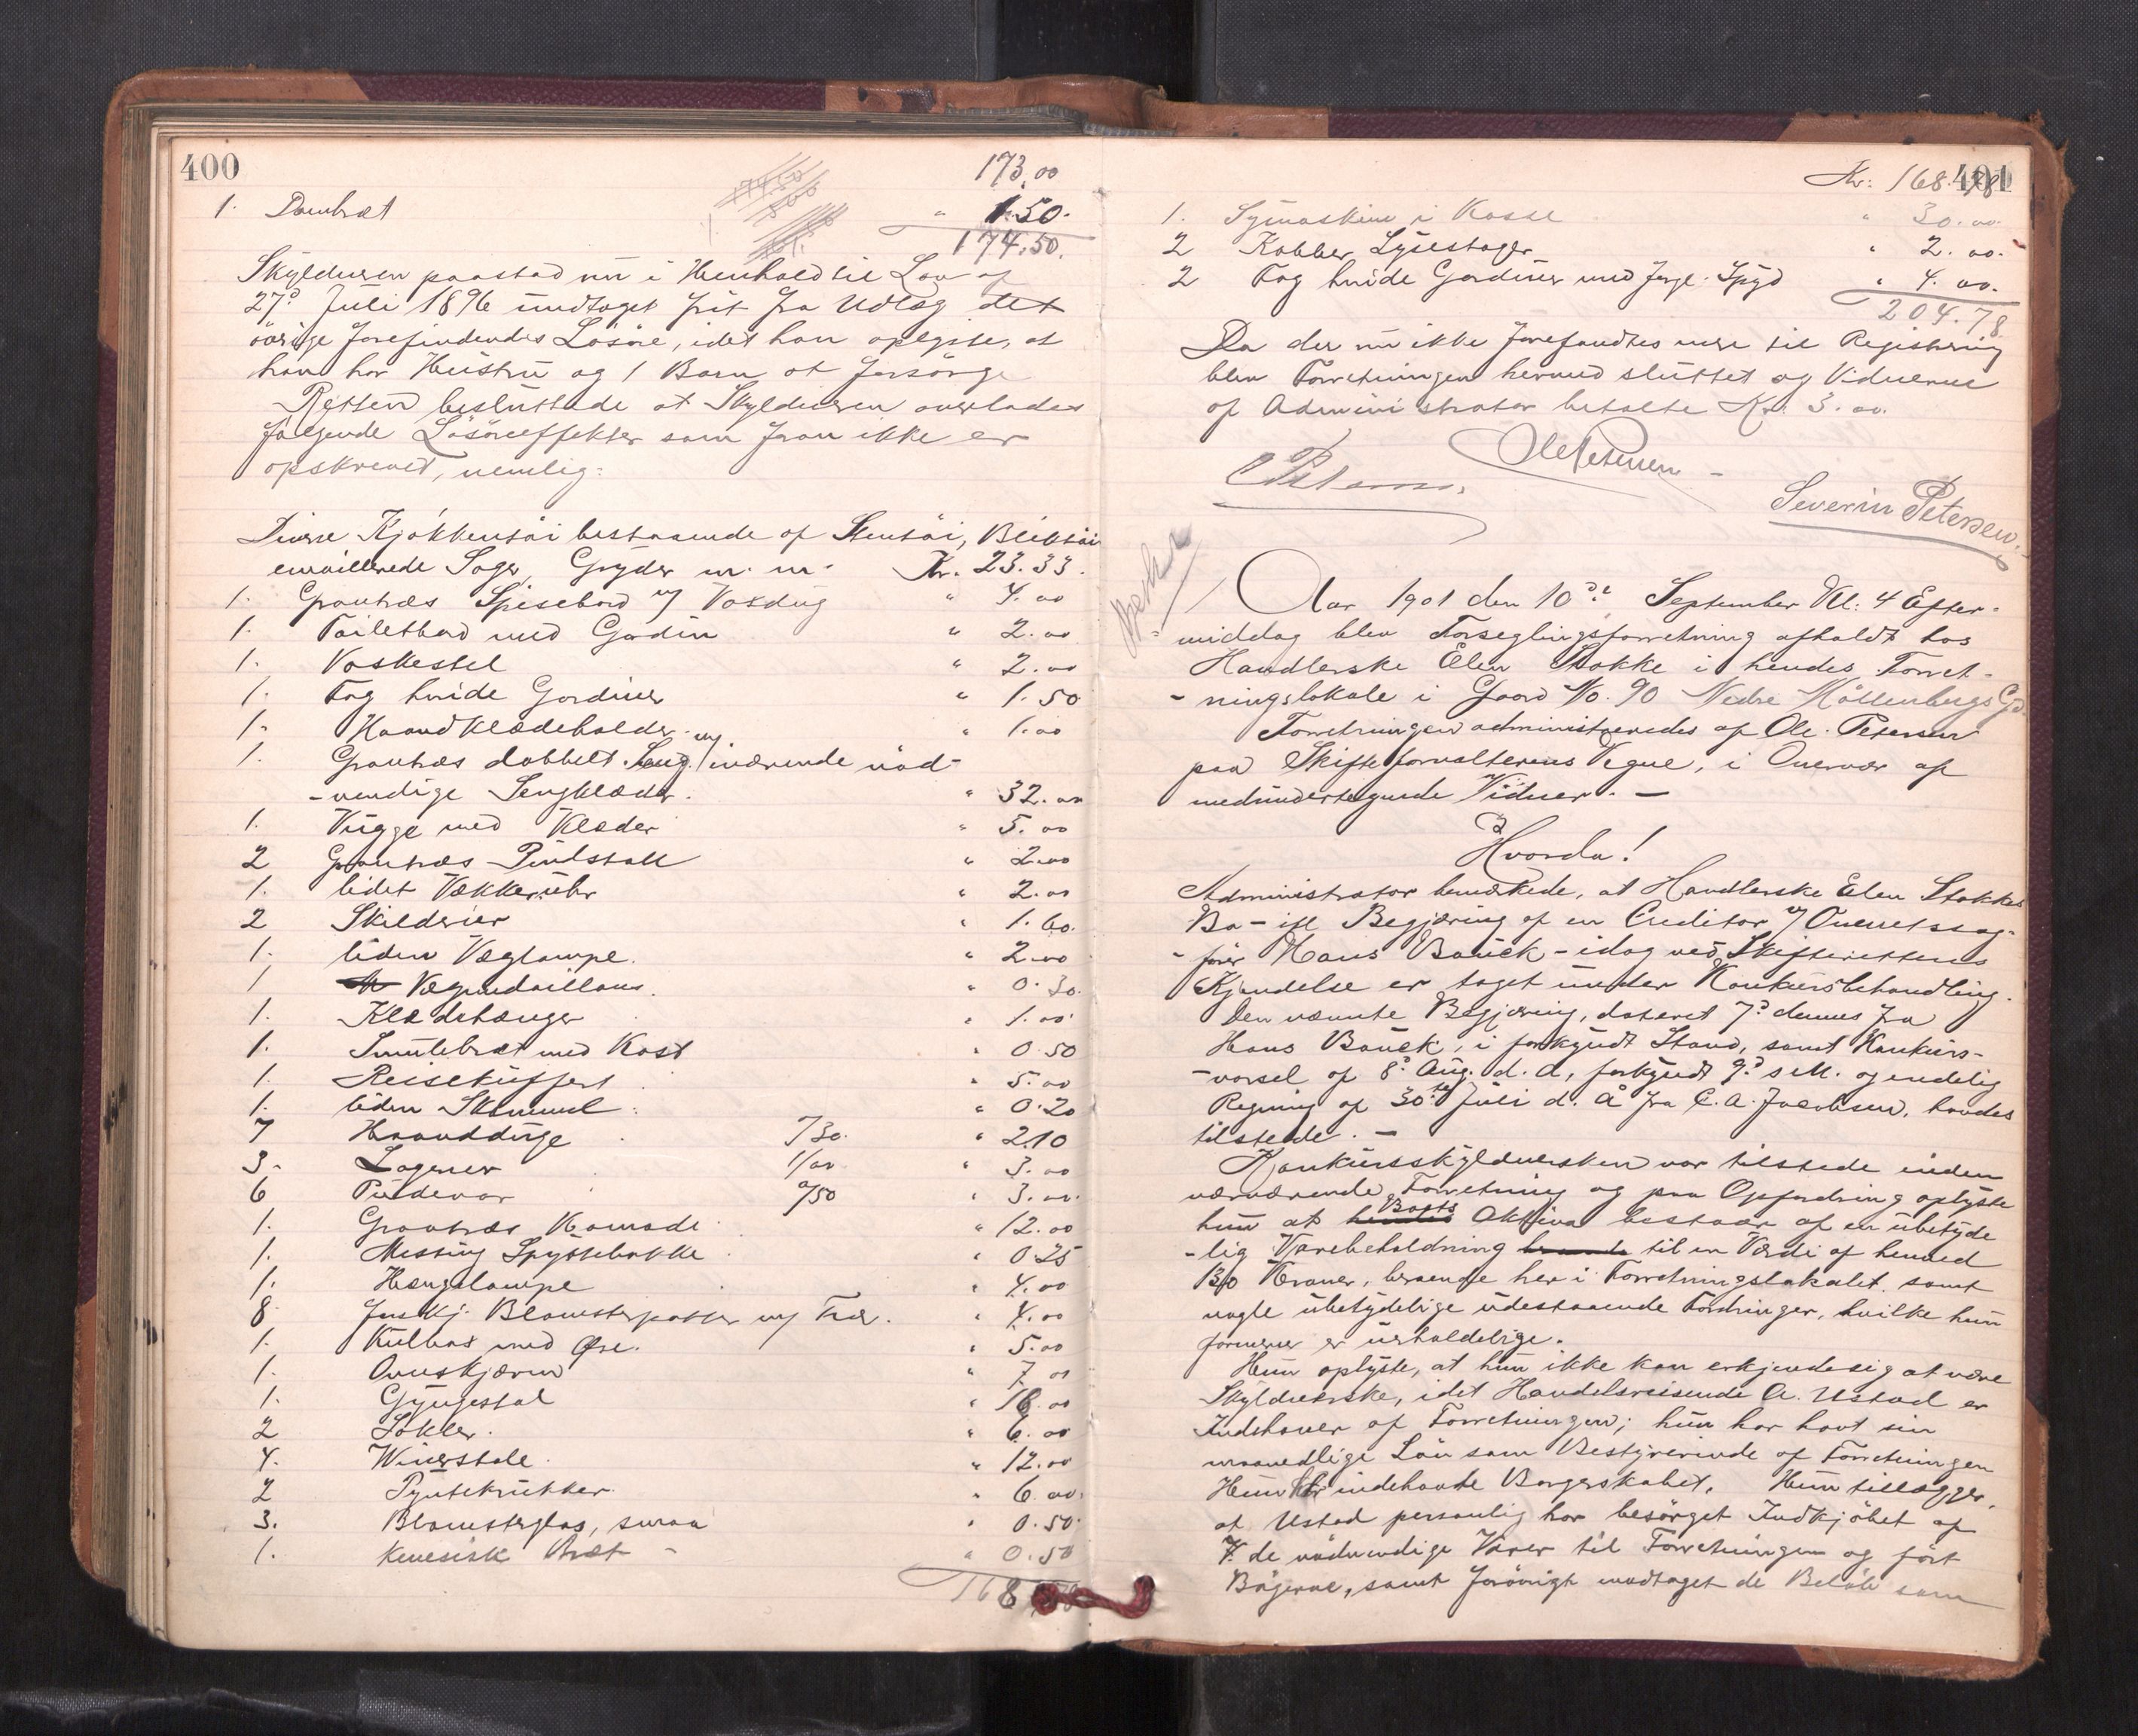 400
173.00
1. Dambræt " 1.50.
174.50.
Skyldneren paastod nu i Henhold til Lov af
27d Juli 1896 undtaget frit fra Udlæg det
övrige forefindendes Lösöre, idet han oplyste, at
han har Hustru og 1 Barn at forsörge
Retten besluttede at Skyldneren overlades
fölgende Lösöreeffekter som foran ikke er
opskrevet, nemlig:
Diverse Kjökkentöi bestaaende af Stentöi, Bliktöi
emaillerede Sager, Gryder m. m. Kr. 23.33.
1. Grantræs Spisebord m/ Voxdug " 4.00
1. Toiletbord med Gardin " 2.00
1. Vaskestel " 2.00
1. Fag hvide Gardiner " 1.50
1. Haandklædeholder " 1.00
1. Grantræs dobbelt Seng m/ iværende nöd-
-vendige Sengklæder. " 32.00
1. Vugge med Klæder " 5.00
2 Grantræs Pindstole " 2.00
1. lidet Vækkeruhr " 2.00
2 Skilderier " 1.60.
1. liden Væglampe. " 2.00
1 Vægmedaillons. " 0.30.
1. Klædehænger " 1.00
1. Smulebræt med Kost " 0.50
1. Reisekuffert " 5.00
1. liden Skammel " 0.20
7 Haandduge /30. " 2.10
3. Lagener 1/00 " 3.00
6 Pudevar /50 " 3.00.
1. Grantræs Komode " 12.00
1. Messing Spyttebakke " 0.25
1. Hængelampe " 4.00
8 Blomsterpotter m/ Trær. " 4.00
1. Kulbox med Öse. " 5.00
1. Ovnskjærm " 7.00
1. Gyngestol " 16.00
2 Sokler. " 6.00
4. Wienerstole. " 12.00
2 Pyntekrukker " 6.00.
3. Blomsterglas, smaa " 0.50
1. kinesisk Bræt - " 0.50
168.78
401
Kr: 168.78
1. Symaskine i Kasse " 30.00.
2 Kobber Lysestager " 2.00.
2 Fag hvide Gardiner med Spyd " 4.00.
204.78
Da der nu ikke forefandtes mere til Registrering
blev Forretningen hermed sluttet og Vidnerne
af Administrator betalte Kr. 3.00.
Ole Petersen
Severin Petersen.
Aar 1901 den 10de September Kl: 4 Efter-
middag blev Forseglingsforretning afholdt hos
Handlerske Elen Stokke i hendes Forret-
-ningslokale i Gaard No. 90 Nedre Möllenbergs Gd.
Forretningen administreredes af Ole Petersen
paa Skifteforvalterens Vegne, i Overvær af
medundertegnede Vidner. —
Hvorda!
Administrator bemærkede, at Handlerske Elen Stokkes
Bo - ifl Begjæring af en Creditor v/ Overretssag-
-förer Hans Bauck - idag ved Skifterettens
Kjendelse er taget under Konkursbehandling.
Den nævnte Begjæring, dateret 7d dennes fra
Hans Bauck, i forkyndt Stand, samt Konkurs-
-varsel af 8d Aug. d. A, forkyndt 9d s. M. og endelig
Regning af 30te Juli d. A fra C. A. Jacobsen, havdes
tilstede. —
Konkursskyldnersken var tilstede under
nærværende Forretning og paa Opfordring oplyste
hun at hendes Boets Aktiva bestaar af en ubetyde
-lig Varebeholdning til en Værdi af henved
130 Kroner, beroende her i Forretningslokalet, samt
nogle ubetydelige udestaaende Fordringer, hvilke hun
formener er uerholdelige.
Hun oplyste, at hun ikke kan erkjende sig at være
Skyldnerske, idet Handelsreisende A. Ustad er
Indehaver af Forretningen; hun har havt sin
maanedlige Lön som Bestyrerinde af Forretningen
Hun indehavde Borgerskabet. Hun tillægger,
at Ustad personlig har besörget Indkjöbet af
de nödvendige Varer til Forretningen og fört
Bögerne, samt forövrigt modtaget de Belöb som